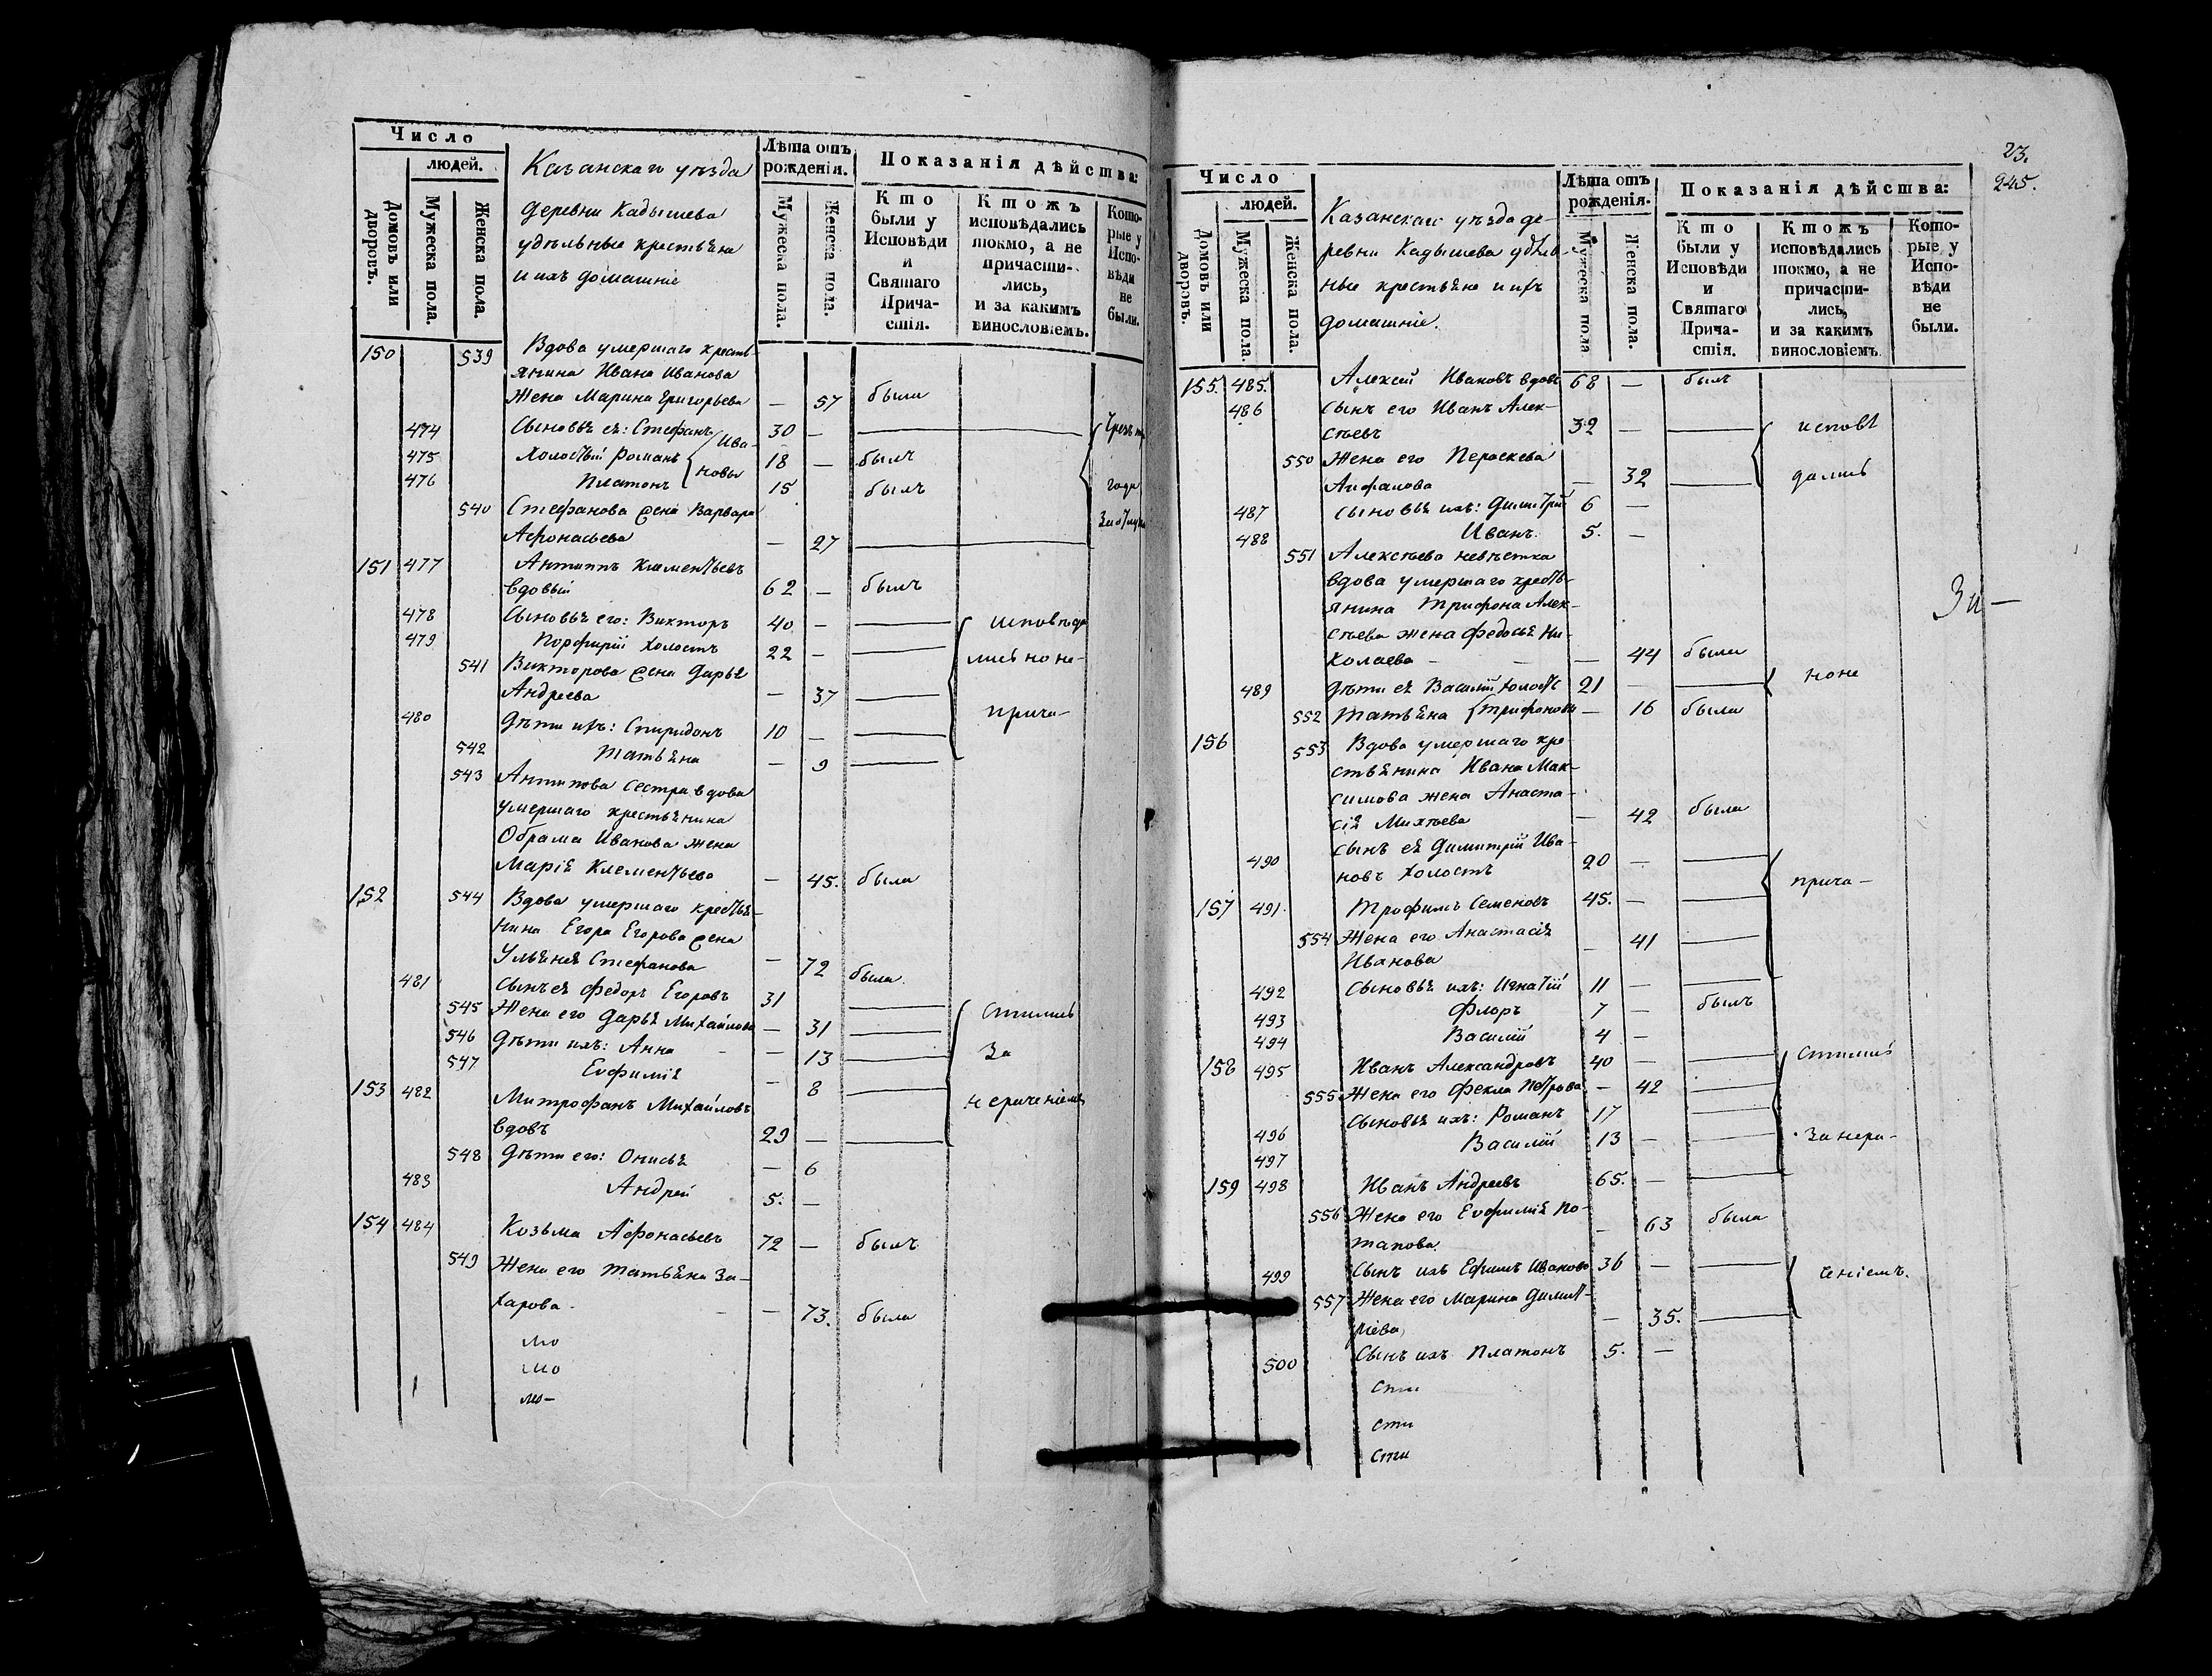 Число
людей.
Домовъ или дворовъ.
Мужеска пола.
Женска пола.
Казанскаго уѣзда
деревни Кадышева
удѣльные крестьяна
и ихъ домашніе
Лѣта отъ рожденія.
Мужеска пола.
Женска пола.
Показанія дѣйства:
Кто были у Исповѣди и Святаго Причастія.
Ктожъ исповѣдались токмо, а не причастились, и за какимъ винословіемъ.
Которые у Исповѣди не были.
150 539 Вдова умершаго кресть-
янина Ивана Иванова
Жена Марина Григорьева — 57 была
474 Сыновья ея: Стефанъ Ива- 30 —
475 Холостый Романъ новы 18 — былъ
476 Платонъ 15 былъ года
540 Стефанова жена Варвара
Афонасьева — 27
151 477 Антипъ Климентьевъ
вдовый 62 — былъ
478 Сыновья его: Викторъ 40 — исповѣда
479 Порфирій холостъ 22 — лись но не-
541 Викторова жена Дарья
Андреева — 37
480 Дѣти ихъ: Спиридонъ 10 — прича-
542 Татьяна — 9
543 Антипова сестра вдова
умершаго крестьянина
Обрама Иванова жена
Марія Клементьева — 45. была
152 544 Вдова умершаго крестья-
нина Егора Егорова жена
Ульянея Стефанова — 72 была.
481 Сынъ ея Федоръ Егоровъ 31
545 Жена его Дарья Михайлова — 31 стились
546 Дѣти ихъ: Анна — 13 за
547 Евфимія — 8
153 482 Митрофанъ Михайловъ нераченіемъ
вдовъ 29 —
548 Дѣти его: Онисья — 6
483 Андрей 5. —
154 484 Козьма Афонасьевъ 72 — былъ
549 Жена его Татьяна За-
харова. — 73. была
мо
мо
мо-
23.
245.
Число
людей.
Домовъ или дворовъ.
Мужеска пола.
Женска пола.
Казанскаго уѣзда де-
ревни Кадышева удѣль-
ные крестьяне и ихъ
домашніе.
Лѣта отъ рожденія.
Мужеска пола
Женска пола.
Показанія дѣйства:
Кто были у Исповѣди и Святаго Причастія.
Ктожъ исповѣдались токмо, а не причастились, и за какимъ винословіемъ.
Которые у Исповѣди не были.
155. 485. Алексей Ивановъ вдовъ 68 — былъ
486 Сынъ его Иванъ Алек-
сѣевъ 32 — исповѣ
550 Жена его Пераскева
— 32 дались
487 Сыновья ихъ: Димитрій 6 —
488 Иванъ. 5. —
551 Алексѣева невѣстка
вдова умершаго кресть-
янина Трифона Алек-
сѣева жена Федосья Ни-
колаева — — 44 была
489 Дѣти ея Василій холостъ 21 — но не
552 Татьяна Трифоновы — 16 была
156 553 Вдова умершаго кре
стьянина Ивана Мак-
симова жена Анаста-
сія Михѣева — 42 была
490 Сынъ ея Димитрій Ива-
новъ холостъ 20 — прича-
157 491. Трофимъ Семеновъ 45. —
554 Жена его Анастасія — 41
Иванова
492 Сыновья ихъ: Игнатій 11 —
493 Флоръ 7 — былъ
494 Василій 4 —
158 495 Иванъ Александровъ 40 — стились
555 Жена его Фекла Петрова — 42
496 Сыновья ихъ: Романъ 17
497 Василій 13 — за нера-
159 498 Иванъ Андреевъ 65. —
556 Жена его Евфимія По-
тапова. — 63 была
499 Сынъ ихъ Ефимъ Ивановъ 36 — ченіемъ.
557 Жена его Марина Димит-
ріева — 35.
500 Сынъ ихъ Платонъ 5. —
сти
сти
сти